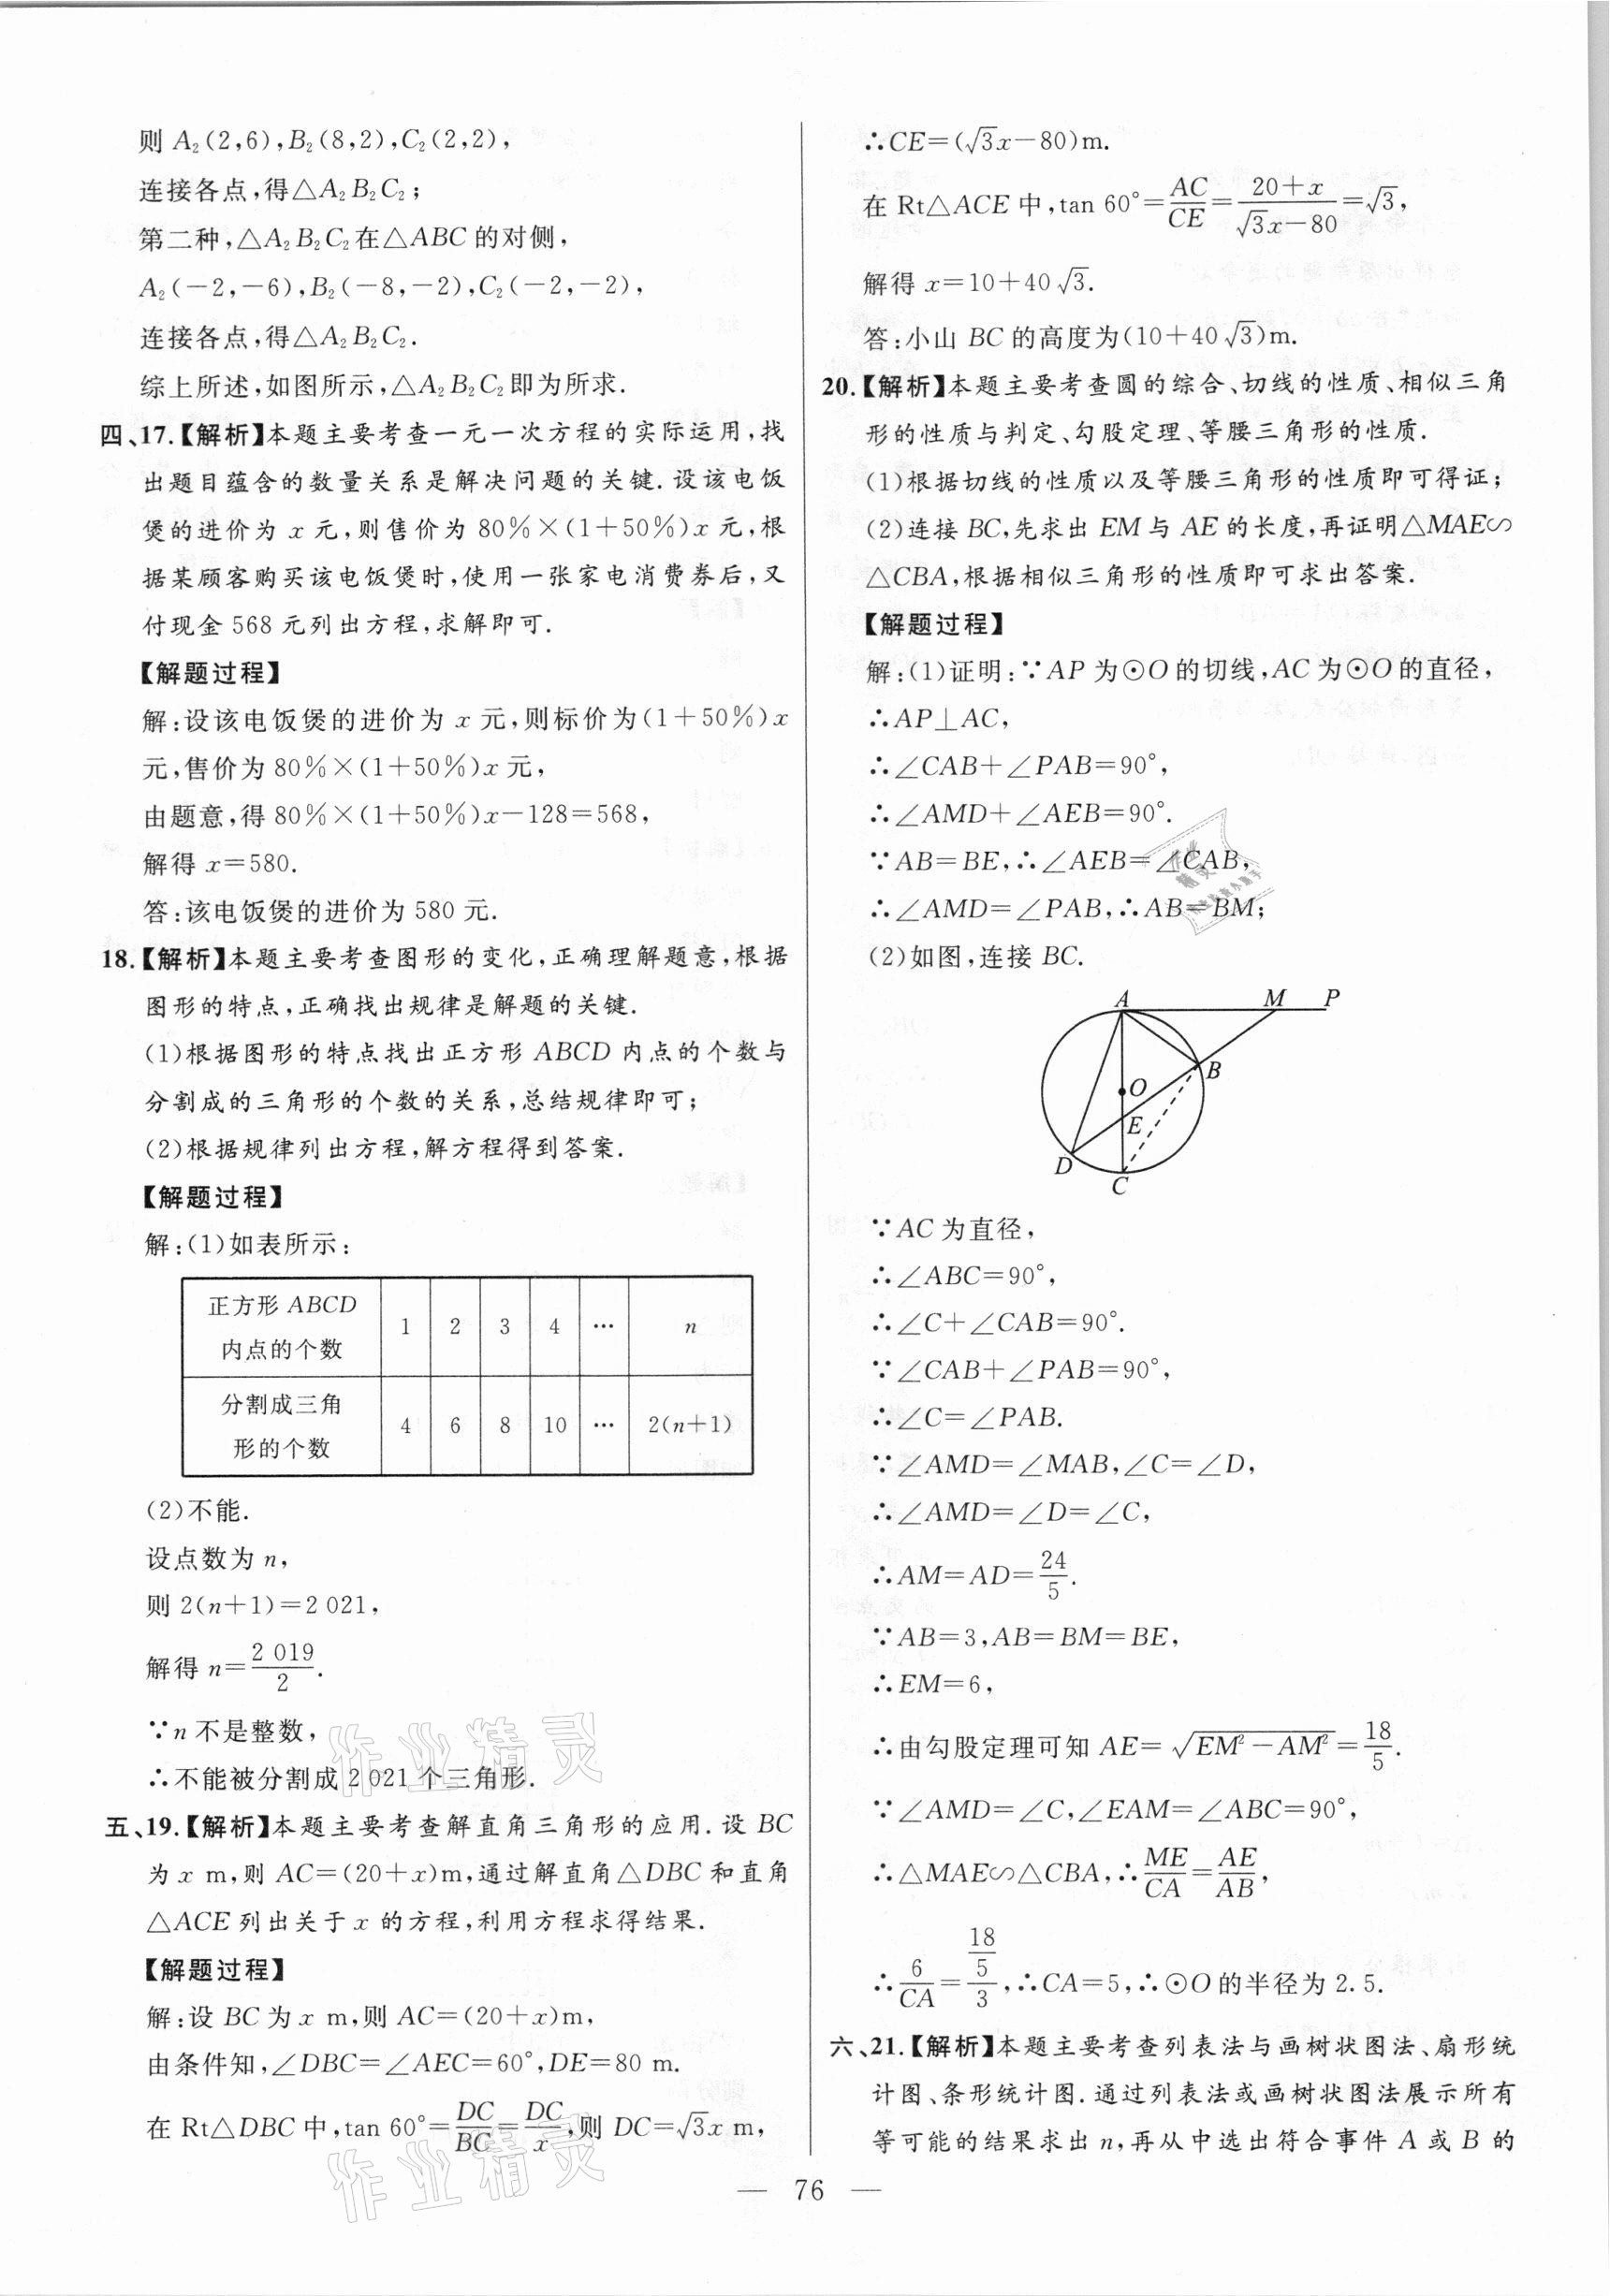 则 A₂(2,6),B₂(8,2),C₂(2,2),
连接各点,得△A₂B₂C₂;
第二种,△A₂B₂C₂在△ABC的对侧,
A₂(-2,-6),B₂(-8,-2),C₂(-2,-2),
连接各点,得△A₂B₂C₂.
综上所述,如图所示,△A₂B₂C₂即为所求.
四、17.【解析】本题主要考查一元一次方程的实际运用,找
出题目蕴含的数量关系是解决问题的关键.设该电饭
煲的进价为 x 元,则售价为 80%×(1+50%)x 元,根
据某顾客购买该电饭煲时,使用一张家电消费券后,又
付现金 568 元列出方程,求解即可.
【解题过程】
解:设该电饭煲的进价为 x 元,则标价为(1+50%)x
元,售价为 80%×(1+50%)x 元,
由题意,得 80%×(1+50%)x-128=568,
解得 x=580.
答:该电饭煲的进价为 580 元.
18.【解析】本题主要考查图形的变化,正确理解题意,根据
图形的特点,正确找出规律是解题的关键.
(1)根据图形的特点找出正方形 ABCD 内点的个数与
分割成的三角形的个数的关系,总结规律即可;
(2)根据规律列出方程,解方程得到答案.
【解题过程】
解:(1)如表所示:
正方形 ABCD
内点的个数 1 2 3 4 … n
分割成三角
形的个数 4 6 8 10 … 2(n+1)
(2)不能.
设点数为 n,
则 2(n+1)=2 021,
解得 n=2 019/2.
∵n 不是整数,
∴不能被分割成 2 021 个三角形.
五、19.【解析】本题主要考查解直角三角形的应用.设 BC
为 x m,则 AC=(20+x)m,通过解直角△DBC 和直角
△ACE 列出关于 x 的方程,利用方程求得结果.
【解题过程】
解:设 BC 为 x m,则 AC=(20+x)m,
由条件知,∠DBC=∠AEC=60°,DE=80 m.
在 Rt△DBC 中,tan 60°=DC/BC=DC/x,则 DC=√3x m,
∴CE=(√3x-80)m.
在 Rt△ACE 中,tan 60°=AC/CE=(20+x)/(√3x-80)=√3,
解得 x=10+40√3.
答:小山 BC 的高度为(10+40√3)m.
20.【解析】本题主要考查圆的综合、切线的性质、相似三角
形的性质与判定、勾股定理、等腰三角形的性质.
(1)根据切线的性质以及等腰三角形的性质即可得证;
(2)连接 BC,先求出 EM 与 AE 的长度,再证明△MAE∽
△CBA,根据相似三角形的性质即可求出答案.
【解题过程】
解:(1)证明:∵AP 为⊙O 的切线,AC 为⊙O 的直径,
∴AP⊥AC,
∴∠CAB+∠PAB=90°,
∴∠AMD+∠AEB=90°.
∵AB=BE,∴∠AEB=∠CAB,
∴∠AMD=∠PAB,∴AB=BM;
(2)如图,连接 BC.
A M P
B
O
E
D
C
∵AC 为直径,
∴∠ABC=90°,
∴∠C+∠CAB=90°.
∵∠CAB+∠PAB=90°,
∴∠C=∠PAB.
∵∠AMD=∠MAB,∠C=∠D,
∴∠AMD=∠D=∠C,
∴AM=AD=24/5.
∵AB=3,AB=BM=BE,
∴EM=6,
∴由勾股定理可知 AE=√(EM²-AM²)=18/5.
∵∠AMD=∠C,∠EAM=∠ABC=90°,
∴△MAE∽△CBA,∴ME/CA=AE/AB,
∴6/CA=(18/5)/3,∴CA=5,∴⊙O 的半径为 2.5.
六、21.【解析】本题主要考查列表法与画树状图法、扇形统
计图、条形统计图.通过列表法或画树状图法展示所有
等可能的结果求出 n,再从中选出符合事件 A 或 B 的
— 76 —
作业精灵
作业精灵